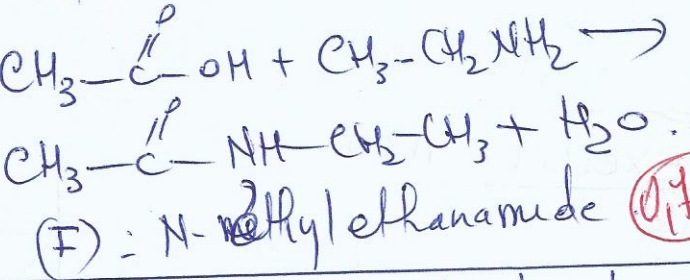 CH₃–C(=O)–OH + CH₃–CH₂NH₂ →
CH₃–C(=O)–NH–CH₂–CH₃ + H₂O.
(F) : N- éthyl ethanamide